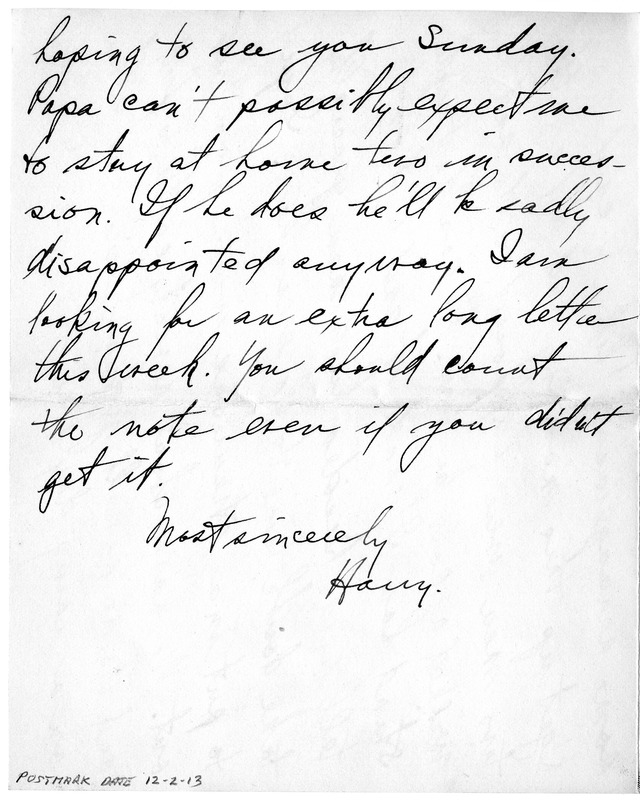 hoping to see you Sunday.
Papa can't possibly expect me
to stay at home two in succes-
sion. If he does he'll be sadly
disappointed anyway. I am
looking for an extra long letter
this week. You should count
the note even if you didn't
get it.
Most sincerely
Harry.
POSTMARK DATE 12-2-13